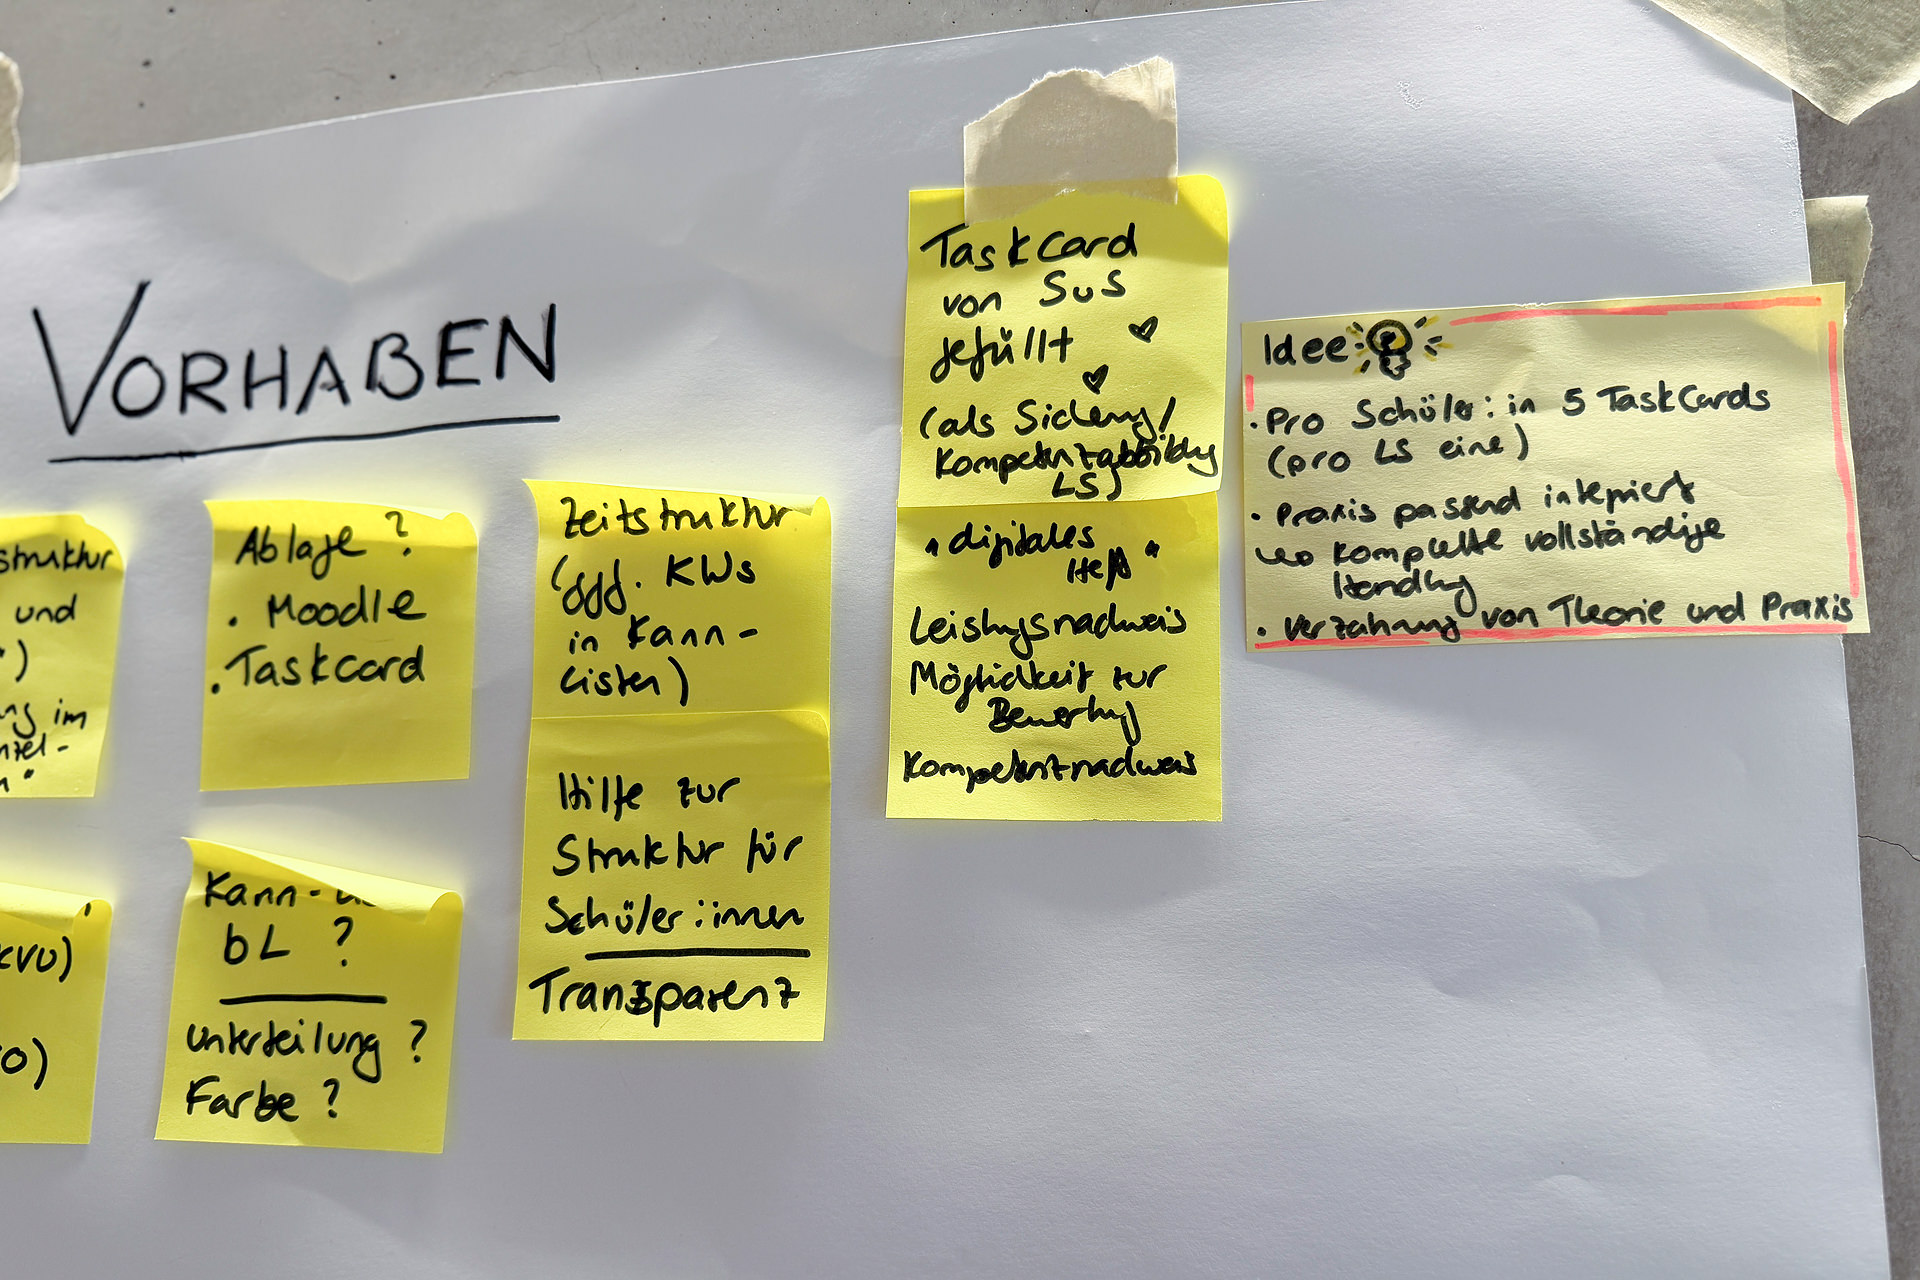 VORHABEN
struktur
und
")
ng im
nzel-
n"
KVU)
O)
Ablage ?
. Moodle
. Taskcard
Kann-
bL ?
Unterteilung ?
Farbe ?
Zeitstruktur
(ggf. KWs
in Kann-
Listen)
Hilfe zur
Struktur für
Schüler:innen
Transparenz
TaskCard
von SuS
gefüllt
(als Sicherung/
Kompetenzabbildung
LS)
"digitales
Heft"
Leistungsnachweis
Möglichkeit zur
Bewertung
Kompetenznachweis
Idee
. Pro Schüler:in 5 TaskCards
(pro LS eine)
. Praxis passend integriert
komplette vollständige
Handlung
. Verzahnung von Theorie und Praxis